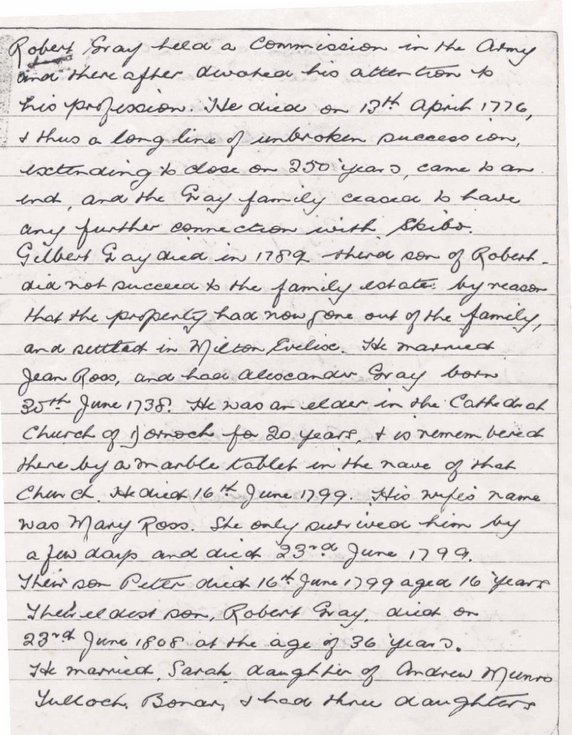 Robert Gray held a Commission in the Army
and there after devoted his attention to
his profession. He died on 13th April 1776,
& thus a long line of unbroken succession,
extending to close on 250 years, came to an
end, and the Gray family ceased to have
any further connection with Skibo.
Gilbert Gray died in 1789 third son of Robert -
did not succeed to the family estate by reason
that the property had now gone out of the family,
and settled in Milton Evelix. He married
Jean Ross, and had Alexander Gray born
June 1738. He was an elder in the Cathedral
Church of Dornoch for 20 years, & is remembered
there by a marble tablet in the nave of that
Church. He died 16th June 1799. His wife's name
was Mary Ross. She only survived him by
a few days and died 23rd June 1799.
Their son Peter died 16th June 1799 aged 16 years
Their eldest son, Robert Gray, died on
23rd June 1808 at the age of 36 years.
He married, Sarah, daughter of Andrew Munro
Tulloch, Bonar, & had three daughters